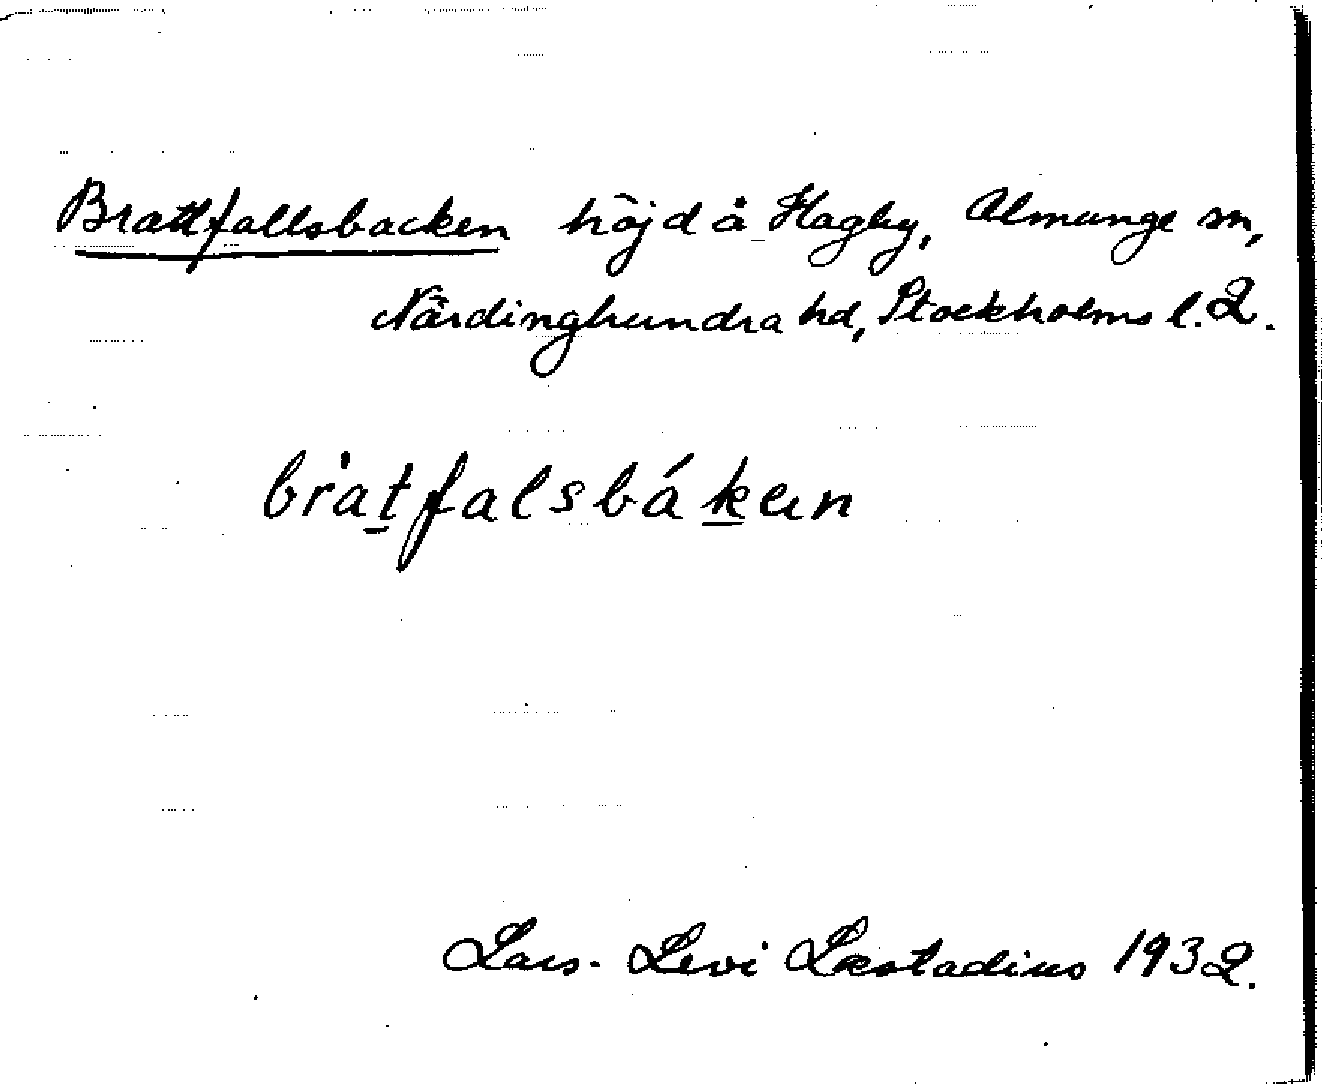 Brattfallsbacken höjd å Hagby, Almunge sn,
Närdinghundra hd, Stockholms l. 2.
bratfalsbáken
Lars-Levi Læstadius 1932.